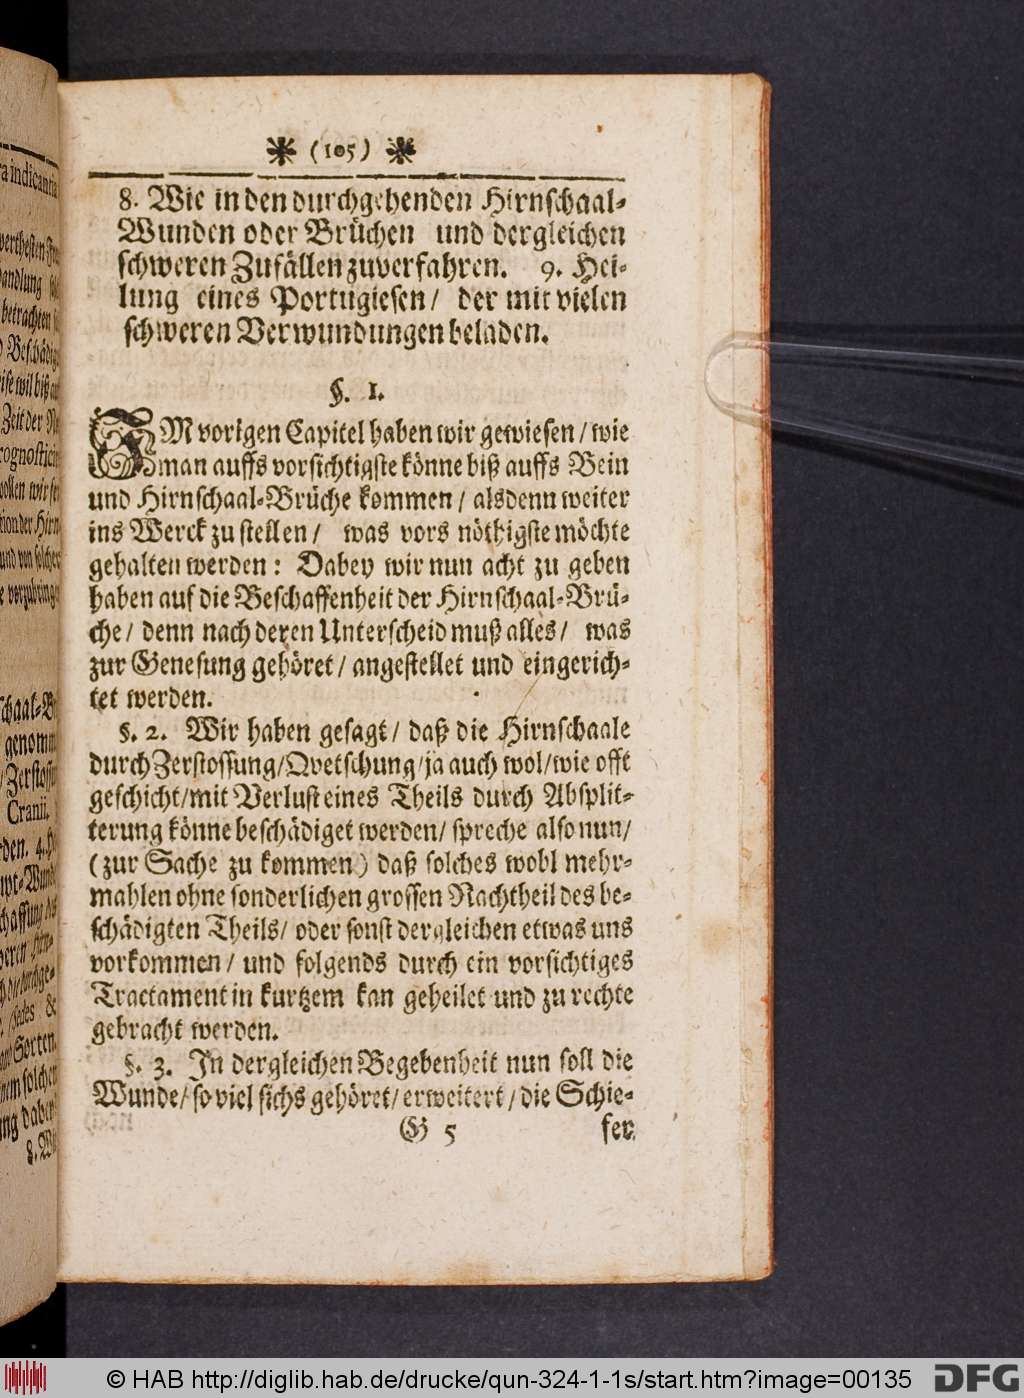 (105)
8. Wie in den durchgehenden Hirnschaal-
Wunden oder Brüchen und dergleichen
schweren Zufällen zuverfahren. 9. Hei-
lung eines Portugiesen / der mit vielen
schweren Verwundungen beladen.
§. 1.
IM vorigen Capitel haben wir gewiesen / wie
man auffs vorsichtigste könne biß auffs Bein
und Hirnschaal-Brüche kommen / alsdenn weiter
ins Werck zu stellen / was vors nöthigste möchte
gehalten werden: Dabey wir nun acht zu geben
haben auf die Beschaffenheit der Hirnschaal-Brü-
che / denn nach deren Unterscheid muß alles / was
zur Genesung gehöret / angestellet und eingerich-
tet werden.
§. 2. Wir haben gesagt / daß die Hirnschaale
durch Zerstossung / Qvetschung / ja auch wol / wie offt
geschicht / mit Verlust eines Theils durch Absplit-
terung könne beschädiget werden / spreche also nun /
(zur Sache zu kommen) daß solches wohl mehr-
mahlen ohne sonderlichen grossen Nachtheil des be-
schädigten Theils / oder sonst dergleichen etwas uns
vorkommen / und folgends durch ein vorsichtiges
Tractament in kurtzem kan geheilet und zu rechte
gebracht werden.
§. 3. In dergleichen Begebenheit nun soll die
Wunde / so viel sichs gehöret / erweitert / die Schie-
G 5 fer
© HAB http://diglib.hab.de/drucke/qun-324-1-1s/start.htm?image=00135
DFG